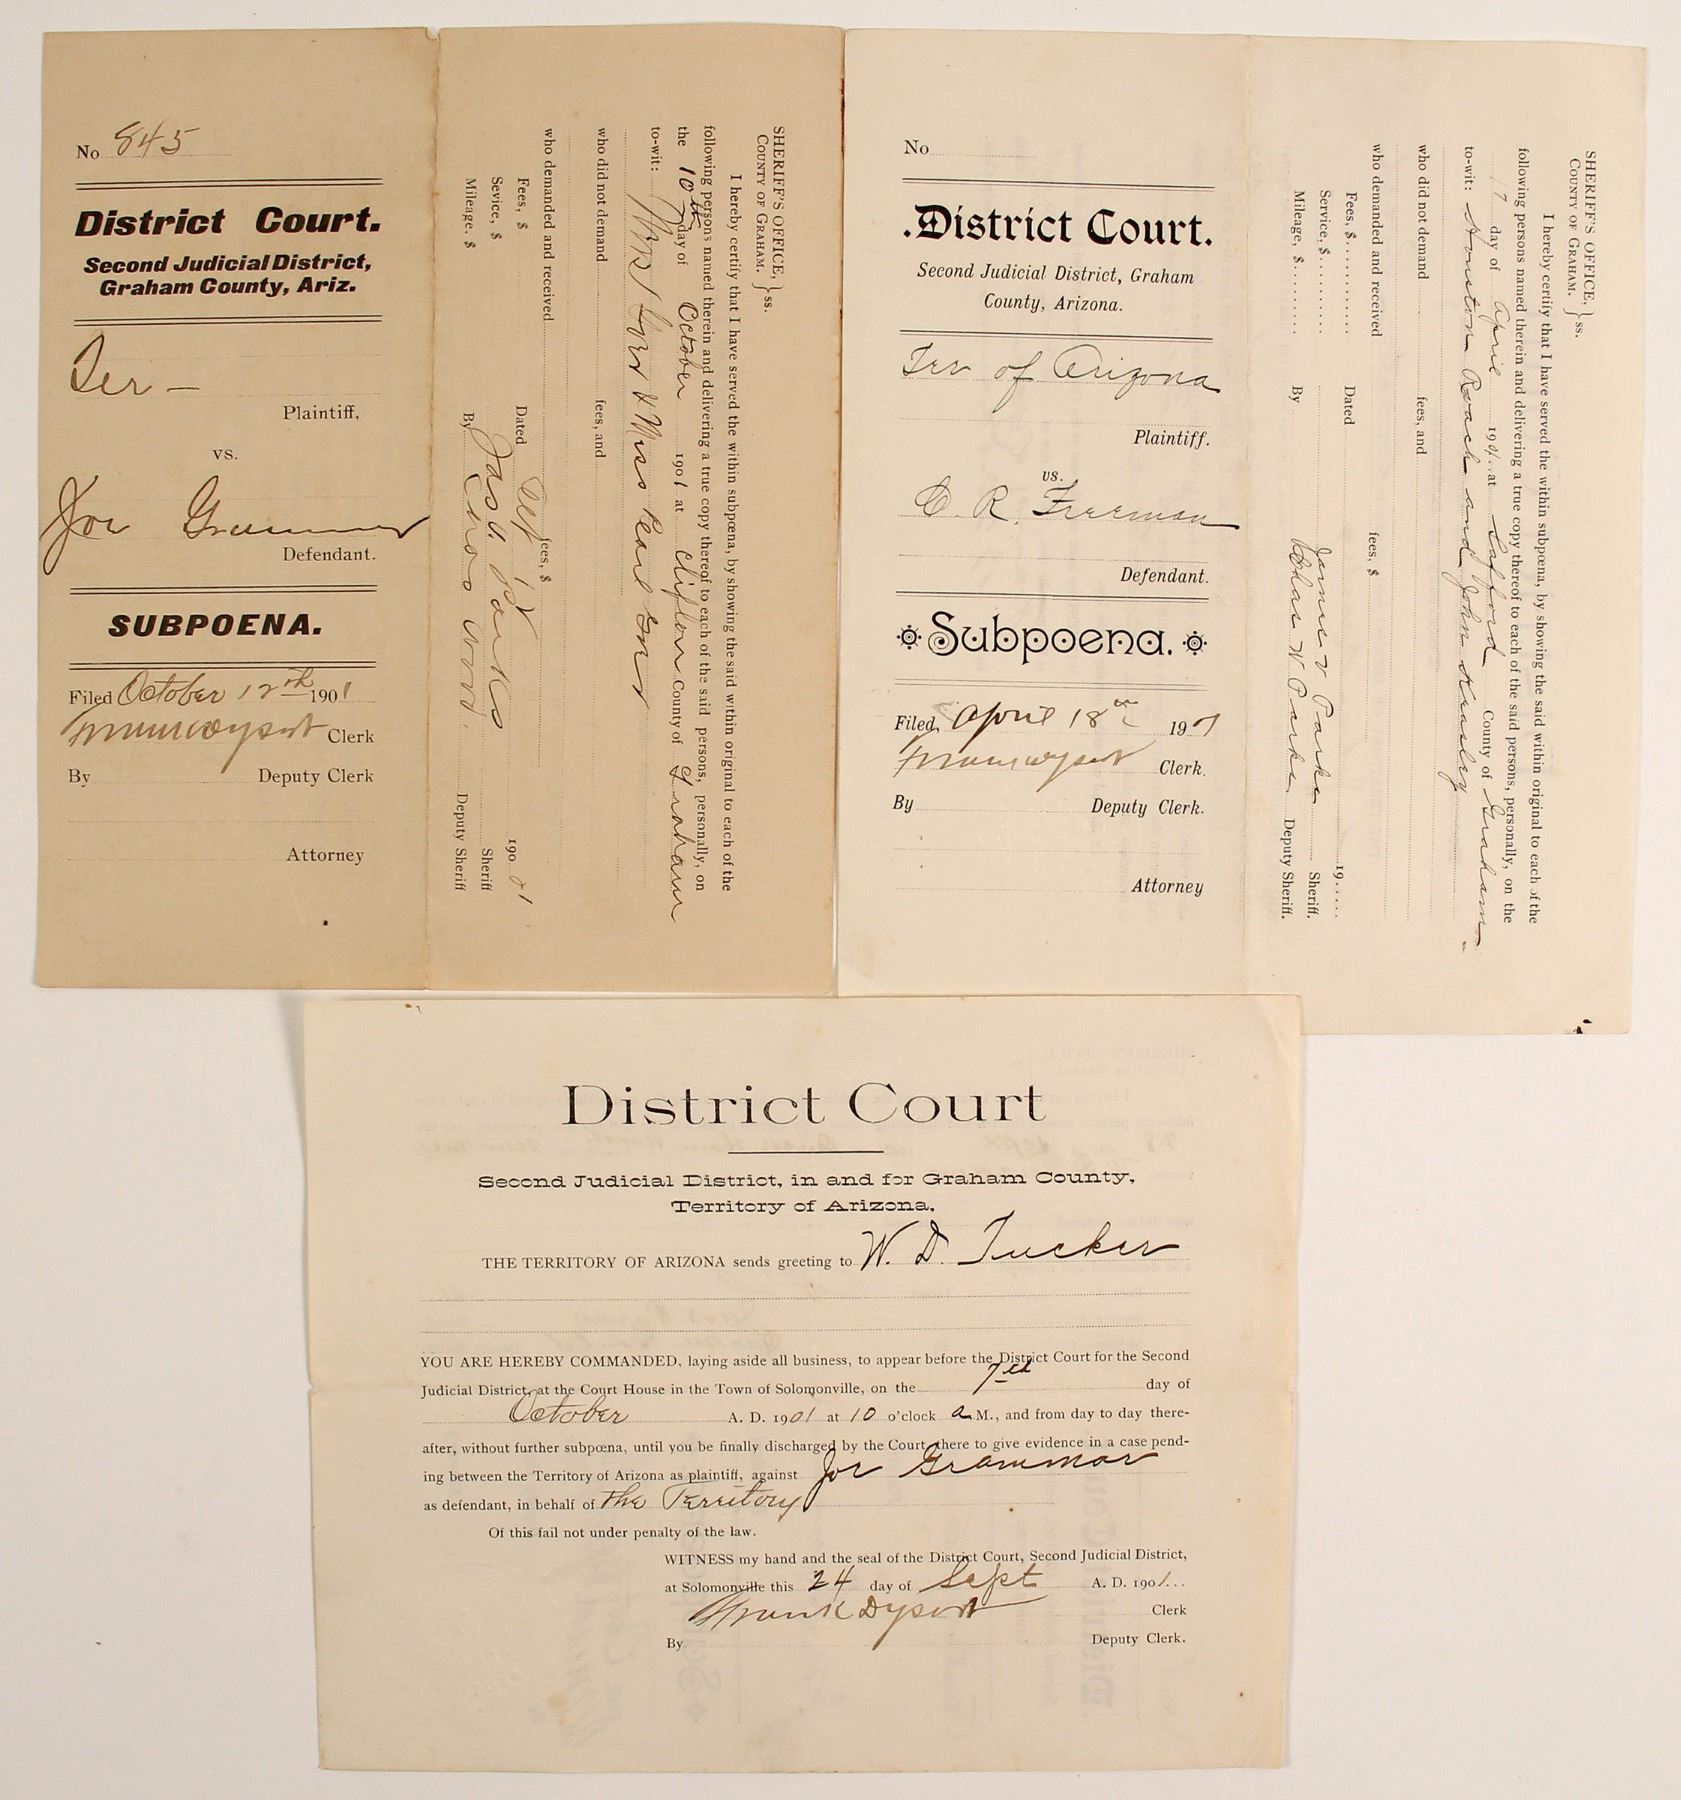 No 845
District Court.
Second Judicial District,
Graham County, Ariz.
Ter —
Plaintiff,
vs.
Joe Grammer
Defendant.
SUBPOENA.
Filed October 12th 1901
Clerk
By Deputy Clerk
Attorney
SHERIFF'S OFFICE,
COUNTY OF GRAHAM. } ss.
I hereby certify that I have served the within subpœna, by showing the said within original to each of the
following persons named therein and delivering a true copy thereof to each of the said persons, personally, on
the 10th day of October 1901 at Clifton County of Graham
to-wit: & Miss Pearl
who did not demand fees, and
who demanded and received fees, $
Fees, $ Dated 1901
Sevice, $ Jas V. Parks Sheriff
Mileage. $ By Deputy Sheriff
No
.District Court.
Second Judicial District, Graham
County, Arizona.
Ter of Arizona
Plaintiff.
vs.
C. R. Freeman
Defendant.
Subpoena.
Filed, April 18th 1901
Clerk.
By Deputy Clerk.
Attorney
SHERIFF'S OFFICE,
COUNTY OF GRAHAM. } ss.
I hereby certify that I have served the within subpœna, by showing the said within original to each of the
following persons named therein and delivering a true copy thereof to each of the said persons, personally, on the
17 day of April 1901 at Safford County of Graham
to-wit: Houston Roach and John
who did not demand fees, and
who demanded and received fees, $
Fees, $ Dated 19
Service, $ James V Parks Sheriff.
Mileage, $ By Chas W Parks Deputy Sheriff.
District Court
Second Judicial District, in and for Graham County,
Territory of Arizona,
THE TERRITORY OF ARIZONA sends greeting to W. D. Tucker
YOU ARE HEREBY COMMANDED, laying aside all business, to appear before the District Court for the Second
Judicial District, at the Court House in the Town of Solomonville, on the 7th day of
October A. D. 1901 at 10 o'clock a M., and from day to day there-
after, without further subpœna, until you be finally discharged by the Court, there to give evidence in a case pend-
ing between the Territory of Arizona as plaintiff, against Joe Grammar
as defendant, in behalf of The Territory
Of this fail not under penalty of the law.
WITNESS my hand and the seal of the District Court, Second Judicial District,
at Solomonville this 24 day of Sept A. D. 1901...
Frank Dysart Clerk
By Deputy Clerk.